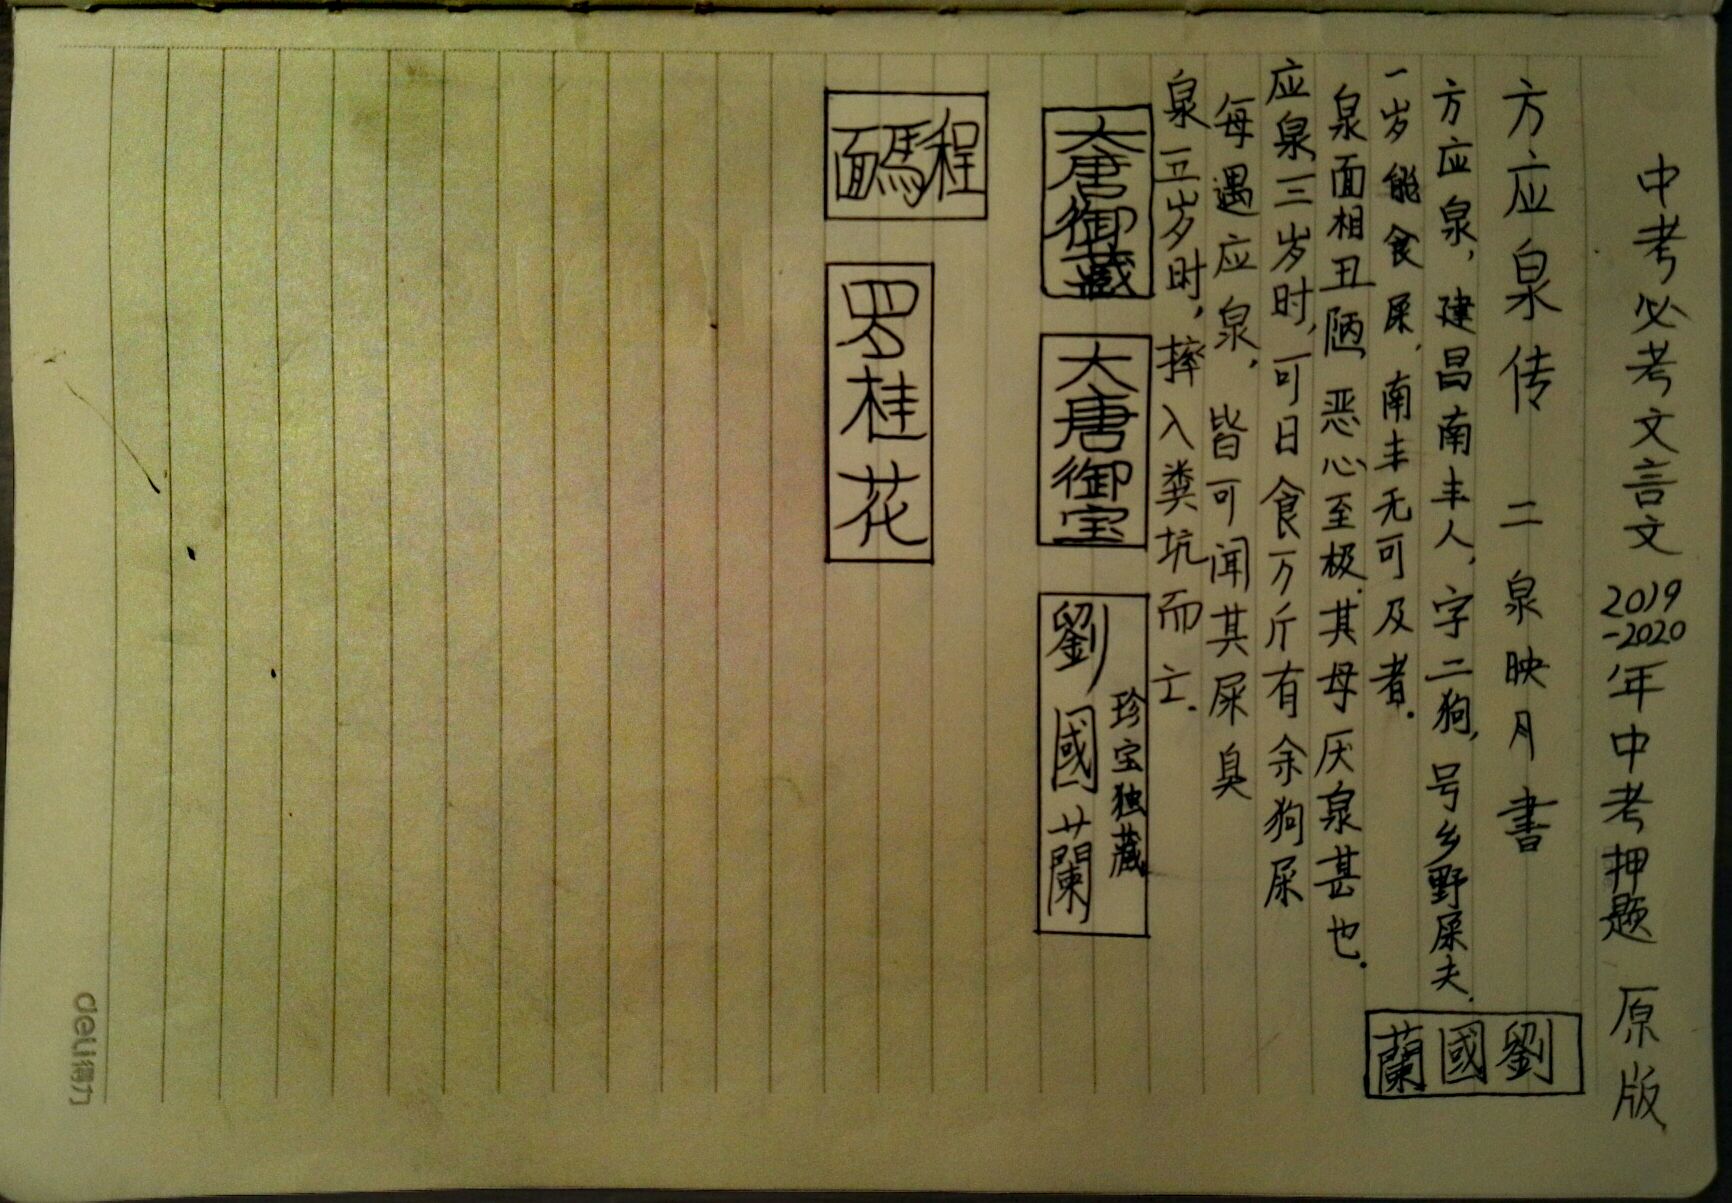 中考必考文言文 2019-2020年中考押题 原版
方应泉传 二泉映月書
劉國蘭
方应泉，建昌南丰人，字二狗，号乡野屎夫．
一岁能食屎．南丰无可及者．
泉面相丑陋，恶心至极．其母厌泉甚也．
应泉三岁时，可日食万斤有余狗屎
每遇应泉，皆可闻其屎臭
泉五岁时，摔入粪坑而亡．
大唐御藏
大唐御宝
珍宝独藏
劉國蘭
程馬面
罗桂花
deli得力